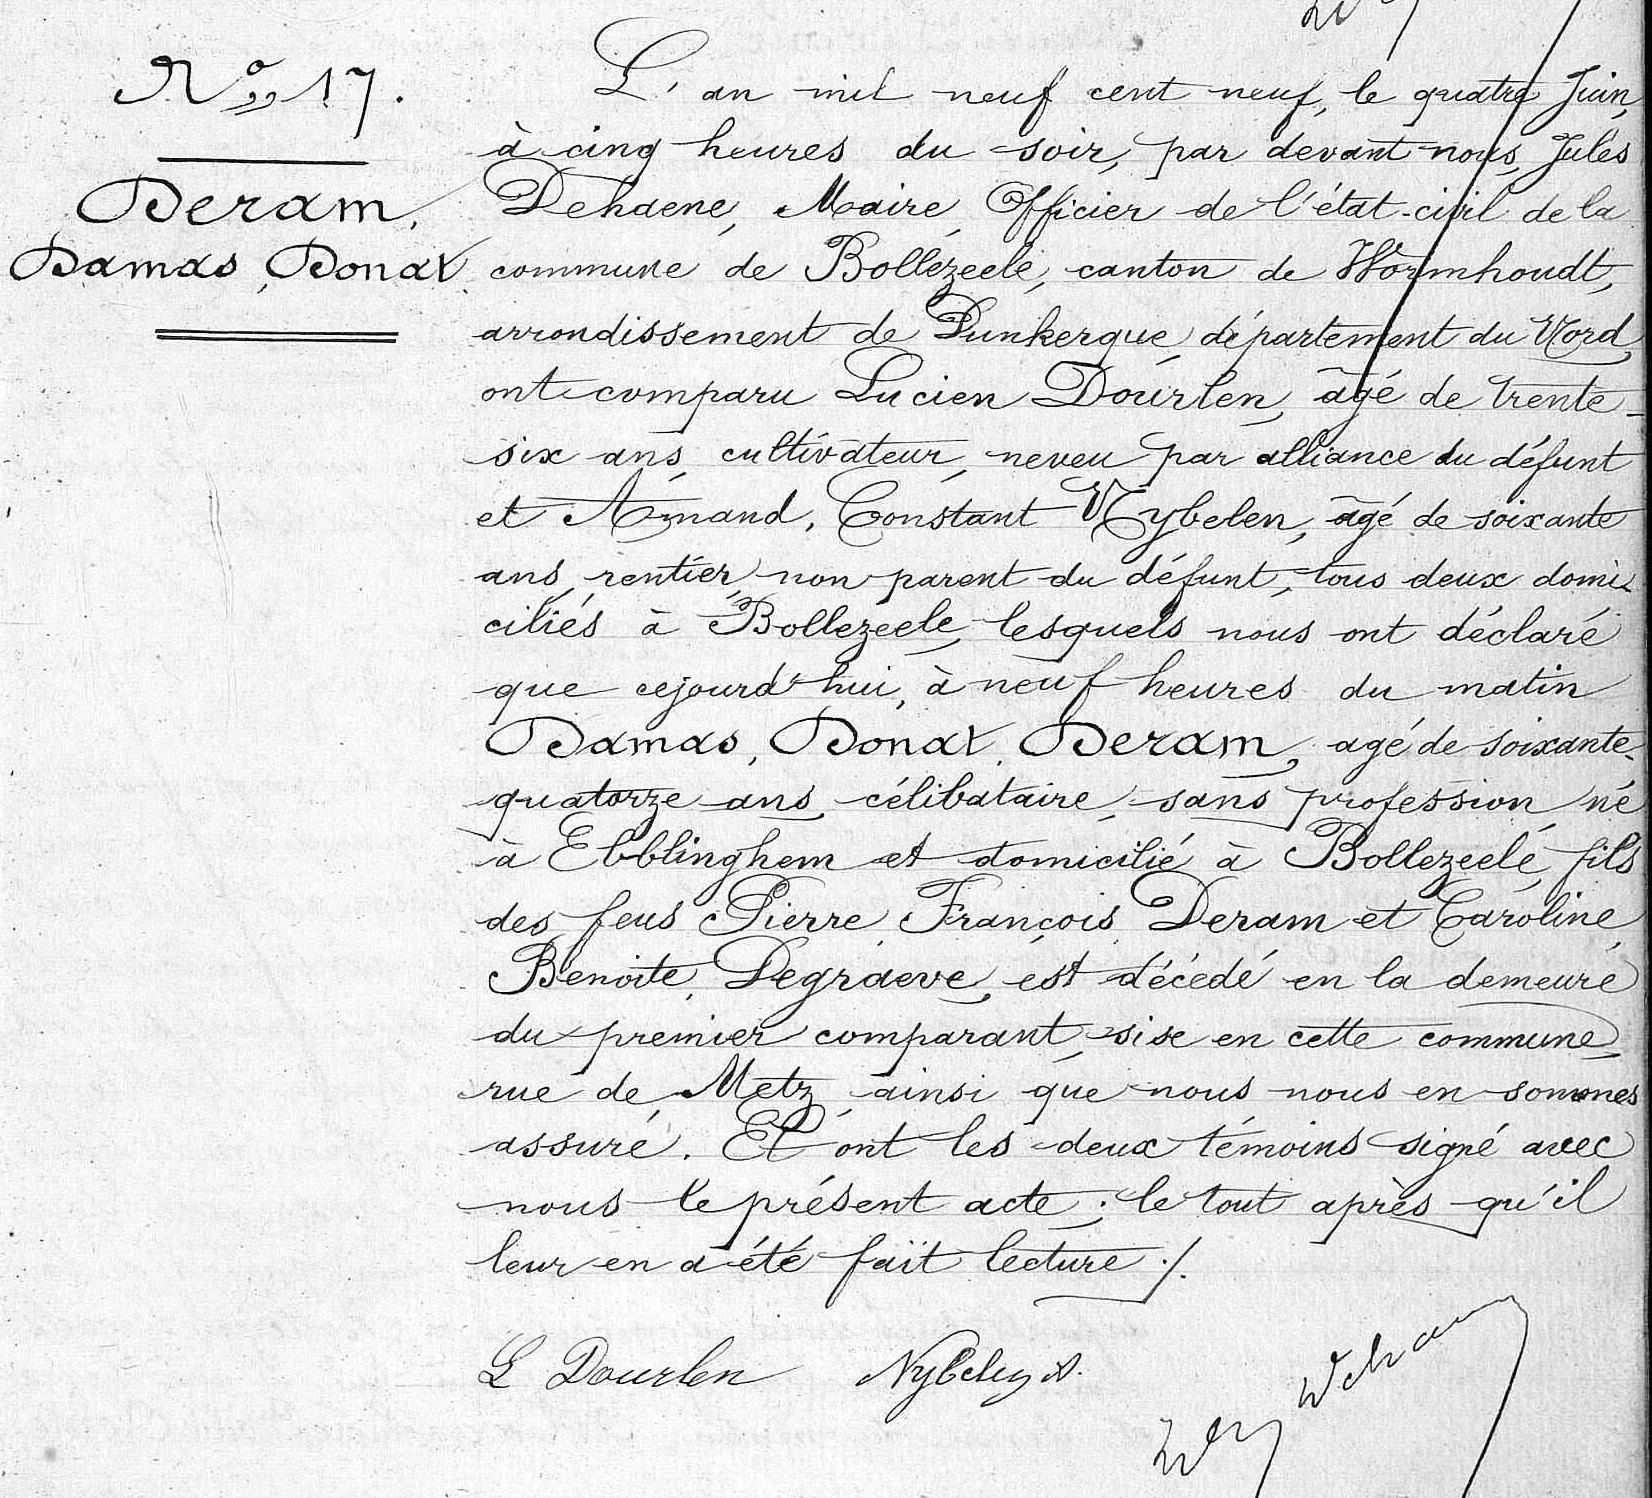 N° 17.
Deram,
Damas, Donat
L'an mil neuf cent neuf, le quatre Juin,
à cinq heures du soir, par devant nous, Jules
Dehaene, Maire, Officier de l'état-civil de la
commune de Bollezeele, canton de Wormhoudt,
arrondissement de Dunkerque, département du Nord
ont comparu Lucien Dourlen, âgé de trente-
six ans, cultivateur, neveu par alliance du défunt
et Amand, Constant Nybelen, âgé de soixante
ans, rentier, non parent du défunt, tous deux domi-
ciliés à Bollezeele, lesquels nous ont déclaré
que cejourd'hui, à neuf heures du matin
Damas, Donat, Deram, agé de soixante-
quatorze ans, célibataire, sans profession, né
à Ebblinghem et domicilié à Bollezeele, fils
des feus Pierre, François Deram et Caroline,
Benoite, Degraeve, est décédé en la demeure
du premier comparant, sise en cette commune,
rue de Metz, ainsi que nous nous en sommes
assuré. Et ont les deux témoins signé avec
nous le présent acte; le tout après qu'il
leur en a été fait lecture ./.
L Dourlen Nybelen A.